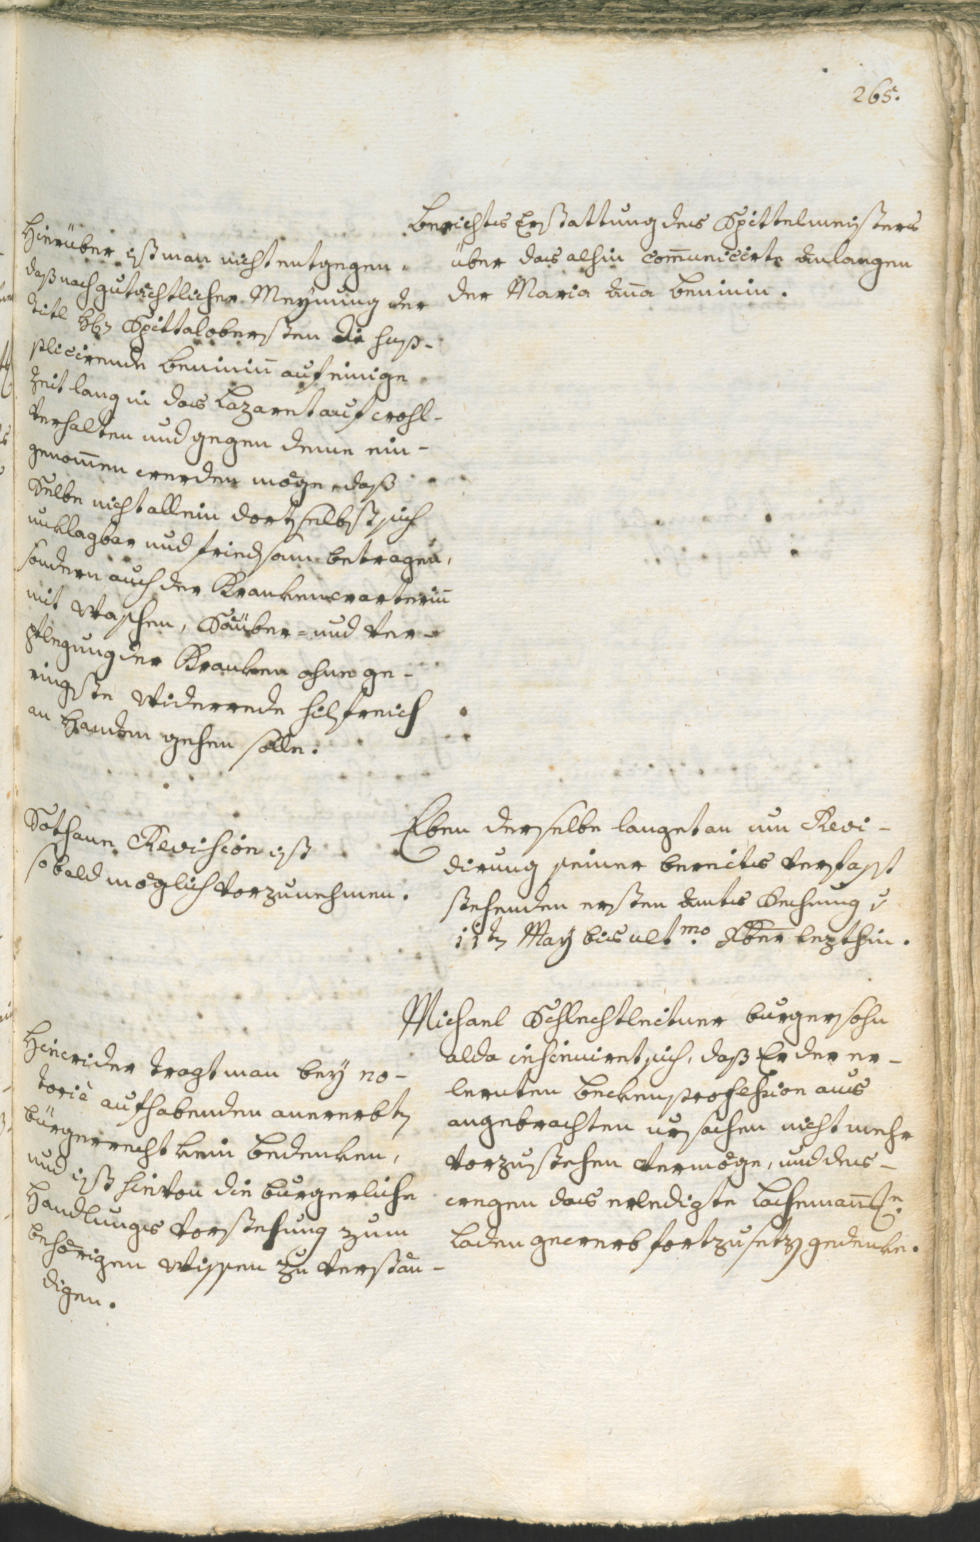 265.
Berichts Erstattung des Spittelmeisters
über das alhin com̅unicirte Anlangen
der Maria An̅a Beninin.
Hierüber ist man nicht entgegen,
daß nach gutächtlicher Meynung der
titl H&#772;&#772; Spittalobersten die sup-
plicirende Beninin̅ auf einige
Zeit lang in das Lazaret auf Wohl-
verhalten und gegen deme ein-
genom̅en werden möge, daß
Selbe nicht allein dortselbst sich
unklagbar und friedsam betragen,
sondern auch der Krankenwarterin̅
mit Waschen, Säuber- und Ver-
pflegung der Kranken ohne ge-
ringste Widerrede hilfreich
an Handen gehen solle.
Eben derselbe langet an um Revi-
dirung seiner bereits verfasst
stehenden ersten Amts Rechnung
11tn May bis ultmo Xber lezthin.
Sothane Revision ist
sobald möglich vorzunehmen.
Michael Schlechtleitner burgerssohn
alda insinuiret sich, daß Er der er-
lernten Beckenprofession aus
angebrachten ursachen nicht mehr
vorzustehen vermöge, und des-
wegen das erledigte Lacheman̅te
Laden gewerb fortzusetzn gedenke.
Hinwider tragt man bey no-
toriè aufhabenden anererbtn
bürgerrecht kein bedenken,
und ist hievon die burgerliche
Handlungs Vorstehung zum
behörigen Wissen zu verstän-
digen.